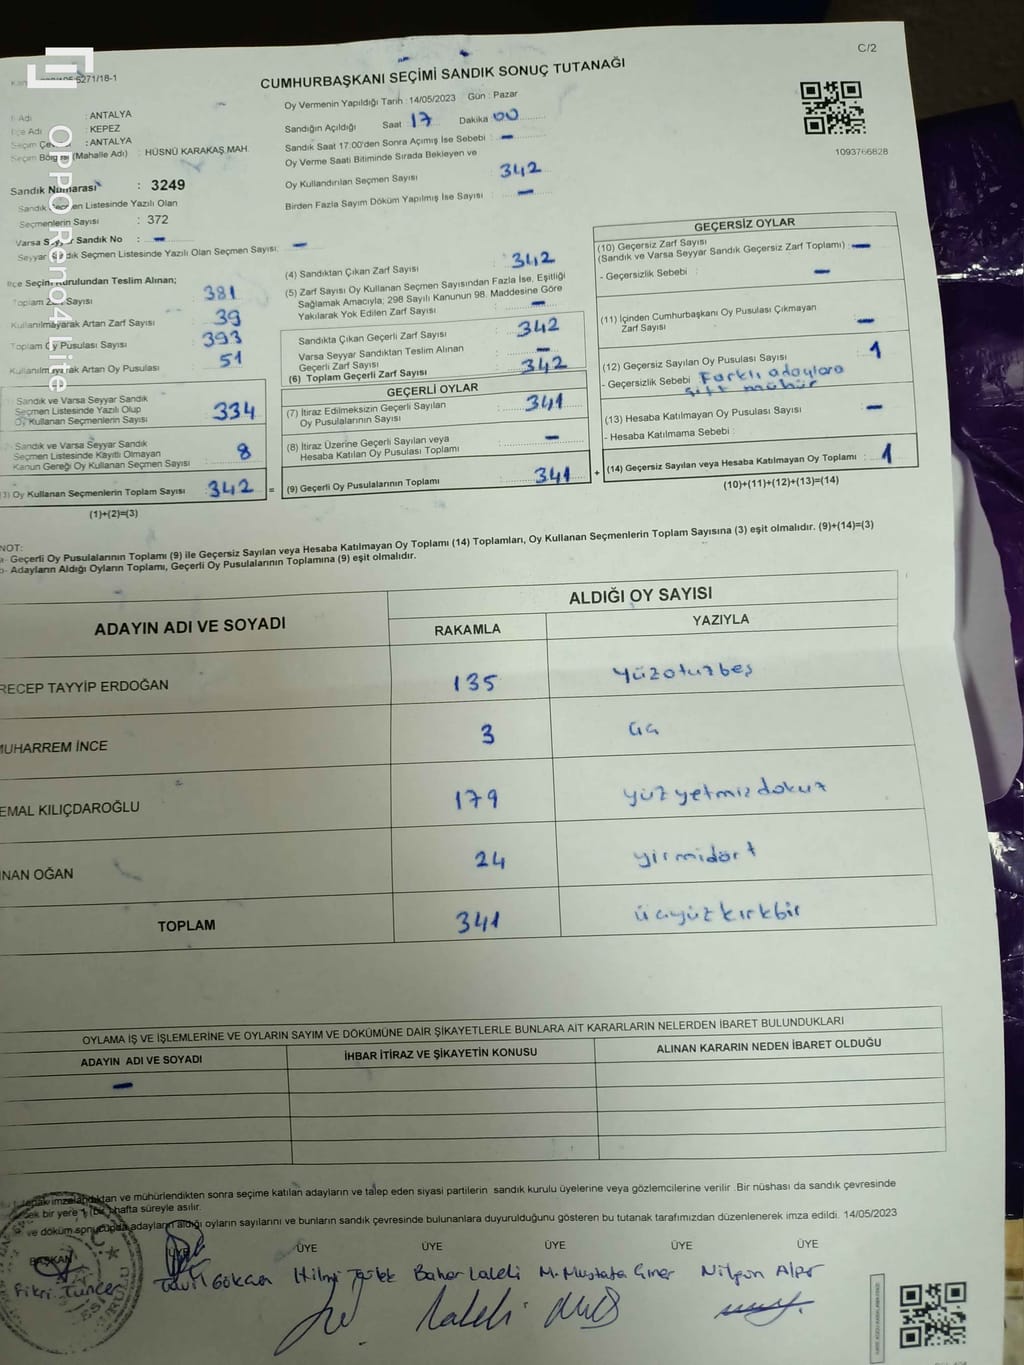 C/2
6271/18-1
CUMHURBAŞKANI SEÇİMİ SANDIK SONUÇ TUTANAĞI
Oy Vermenin Yapıldığı Tarih : 14/05/2023 Gün : Pazar
Adı : ANTALYA
İlçe Adı : KEPEZ
Seçim : ANTALYA
Seçim Bölgesi (Mahalle Adı) : HÜSNÜ KARAKAŞ MAH.
Sandığın Açıldığı Saat 17 Dakika 00
Sandık Saat 17:00'den Sonra Açımış İse Sebebi : -
Oy Verme Saati Bitiminde Sırada Bekleyen ve
Oy Kullandırılan Seçmen Sayısı : 342
Birden Fazla Sayım Döküm Yapılmış İse Sayısı : -
1093766828
Sandık Numarası : 3249
Sandık Seçmen Listesinde Yazılı Olan
Seçmenlerin Sayısı : 372
Varsa Seyyar Sandık No : -
Seyyar Sandık Seçmen Listesinde Yazılı Olan Seçmen Sayısı: -
İlçe Seçim Kurulundan Teslim Alınan;
Toplam Zarf Sayısı 381
Kullanılmayarak Artan Zarf Sayısı : 39
Toplam Oy Pusulası Sayısı : 393
Kullanılmayarak Artan Oy Pusulası : 51
Sandık ve Varsa Seyyar Sandık
Seçmen Listesinde Yazılı Olup
Oy Kullanan Seçmenlerin Sayısı : 334
Sandık ve Varsa Seyyar Sandık
Seçmen Listesinde Kayıtlı Olmayan
Kanun Gereği Oy Kullanan Seçmen Sayısı : 8
(3) Oy Kullanan Seçmenlerin Toplam Sayısı : 342 =
(1)+(2)=(3)
(4) Sandıktan Çıkan Zarf Sayısı : 342
(5) Zarf Sayısı Oy Kullanan Seçmen Sayısından Fazla İse, Eşitliği
Sağlamak Amacıyla; 298 Sayılı Kanunun 98. Maddesine Göre
Yakılarak Yok Edilen Zarf Sayısı : -
Sandıkta Çıkan Geçerli Zarf Sayısı : 342
Varsa Seyyar Sandıktan Teslim Alınan
Geçerli Zarf Sayısı : -
(6) Toplam Geçerli Zarf Sayısı : 342
GEÇERLİ OYLAR
(7) İtiraz Edilmeksizin Geçerli Sayılan
Oy Pusulalarının Sayısı : 341
(8) İtiraz Üzerine Geçerli Sayılan veya
Hesaba Katılan Oy Pusulası Toplamı : -
(9) Geçerli Oy Pusulalarının Toplamı : 341 +
GEÇERSİZ OYLAR
(10) Geçersiz Zarf Sayısı
(Sandık ve Varsa Seyyar Sandık Geçersiz Zarf Toplamı) : -
- Geçersizlik Sebebi : -
(11) İçinden Cumhurbaşkanı Oy Pusulası Çıkmayan
Zarf Sayısı : -
(12) Geçersiz Sayılan Oy Pusulası Sayısı : 1
- Geçersizlik Sebebi : Farklı adaylara
çift mühür
(13) Hesaba Katılmayan Oy Pusulası Sayısı : -
- Hesaba Katılmama Sebebi :
(14) Geçersiz Sayılan veya Hesaba Katılmayan Oy Toplamı : 1
(10)+(11)+(12)+(13)=(14)
NOT:
a- Geçerli Oy Pusulalarının Toplamı (9) ile Geçersiz Sayılan veya Hesaba Katılmayan Oy Toplamı (14) Toplamları, Oy Kullanan Seçmenlerin Toplam Sayısına (3) eşit olmalıdır. (9)+(14)=(3)
b- Adayların Aldığı Oyların Toplamı, Geçerli Oy Pusulalarının Toplamına (9) eşit olmalıdır.
ADAYIN ADI VE SOYADI
ALDIĞI OY SAYISI
RAKAMLA YAZIYLA
RECEP TAYYİP ERDOĞAN 135 yüzotuzbeş
MUHARREM İNCE 3 üç
EMAL KILIÇDAROĞLU 179 yüzyetmizdokuz
NAN OĞAN 24 yirmidört
TOPLAM 341 üçyüzkırkbir
OYLAMA İŞ VE İŞLEMLERİNE VE OYLARIN SAYIM VE DÖKÜMÜNE DAİR ŞİKAYETLERLE BUNLARA AİT KARARLARIN NELERDEN İBARET BULUNDUKLARI
ADAYIN ADI VE SOYADI İHBAR İTİRAZ VE ŞİKAYETİN KONUSU ALINAN KARARIN NEDEN İBARET OLDUĞU
-
imzalandıktan ve mühürlendikten sonra seçime katılan adayların ve talep eden siyasi partilerin sandık kurulu üyelerine veya gözlemcilerine verilir. Bir nüshası da sandık çevresinde
bir yere 1 (bir) hafta süreyle asılır.
ve döküm sonucunda adayların aldığı oyların sayılarını ve bunların sandık çevresinde bulunanlara duyurulduğunu gösteren bu tutanak tarafımızdan düzenlenerek imza edildi. 14/05/2023
BAŞKAN ÜYE ÜYE ÜYE ÜYE ÜYE ÜYE
Fikri Tuncer Gökcen Hilmi Bahar Laleli M. Mustafa Nilgün
OPPO Reno4 Lite